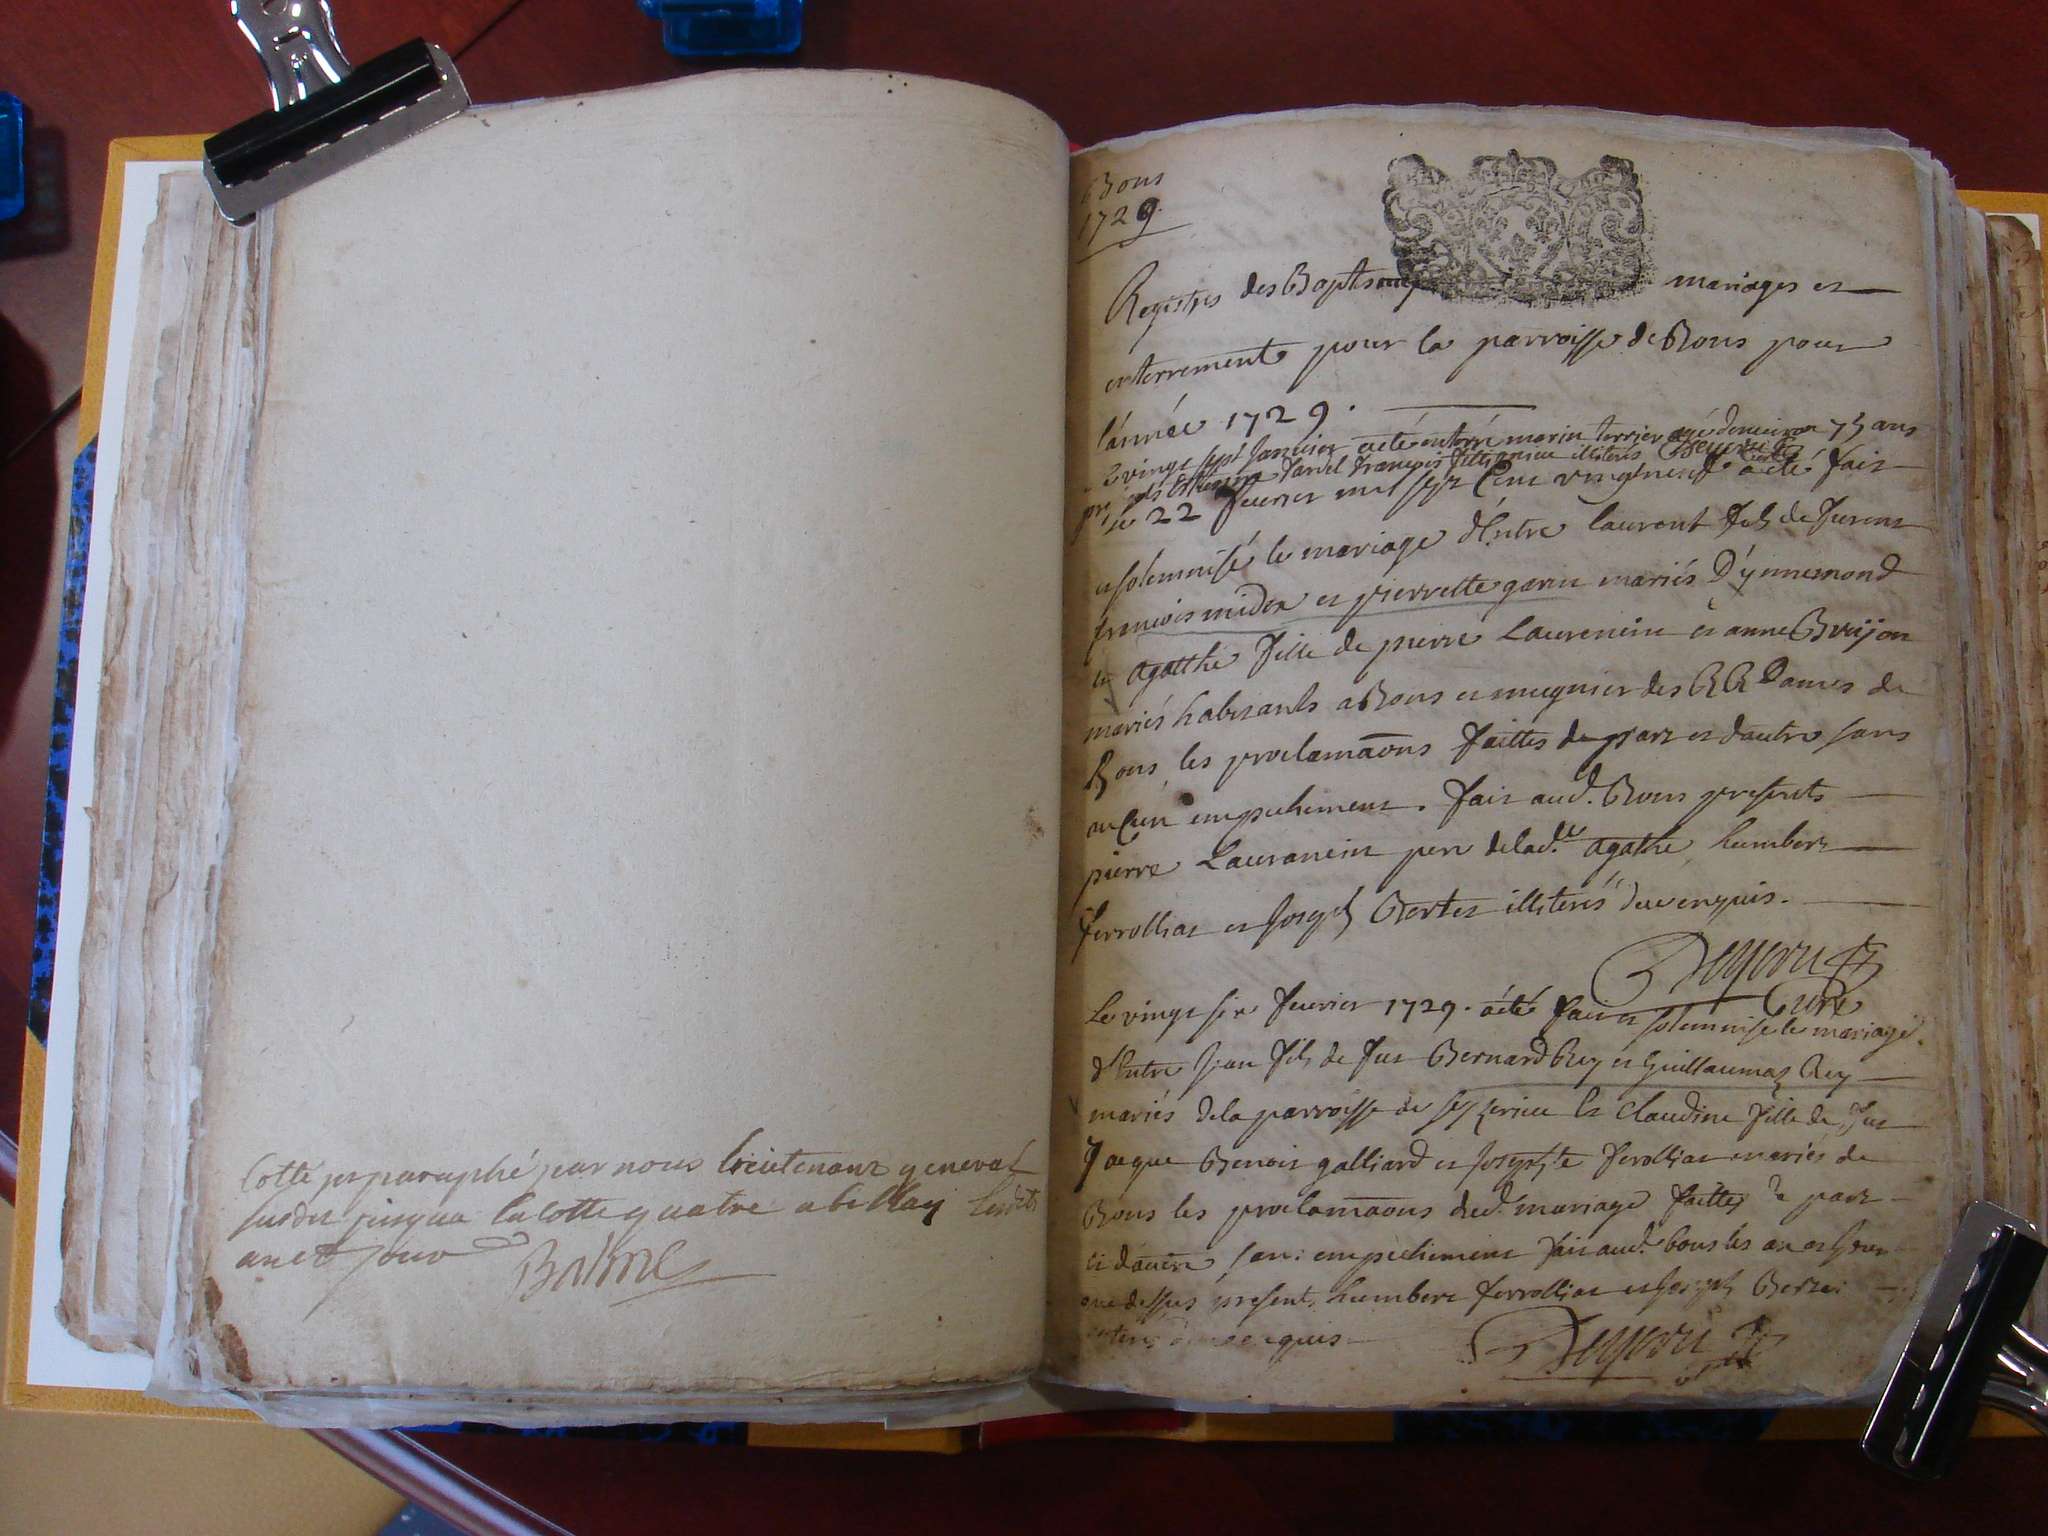 Cotté et paraphé par nous lieutenant general
susdit jusqua la cotte quatre a bellay lesdits
an et jour
Balme
Bons
1729.
Registres des Baptsmes mariages et
enterrements pour la parroisse de Bons pour
l'année 1729.
vingt sept Janvier a eté enterré marin terrier agé denviron 75 ans
françois illiteres
le 22 feuvrier mil sept Cent vingtneuf a eté fait
et solemnisé le mariage d'Entre laurent fils de furent
francois midon et pierrette garin mariés D'ynnemond
et agatthe fille de pierre Laurencin et anne Brijon
mariés habitants a Bons et mugnier des RR Dames de
Bons les proclamaons faittes de part et dautre sans
auCun empechement. fait aud. Bons presents
pierre Laurancin pere delad.e agathe, humbert
ferrolliat et Joseph Bertet illiterés deuenquis.
Deyeru
Curé
Le vingt six feuvrier 1729. a eté fait et solemnise le mariage
d'Entre Jean fils de fut Bernard Rey et Guillaumaz Rey
mariés dela parroisse de seyzerieu Et Claudine fille de fut
Jacque Benoit galliard et Josephte ferolliat mariés de
Bons les proclamaons dud. mariage faittes de part
et dautre sans empechement fait aud. bons les an et Jour
que dessus present, humbert ferrolliat et Joseph Bertet
enquis
Deyeru